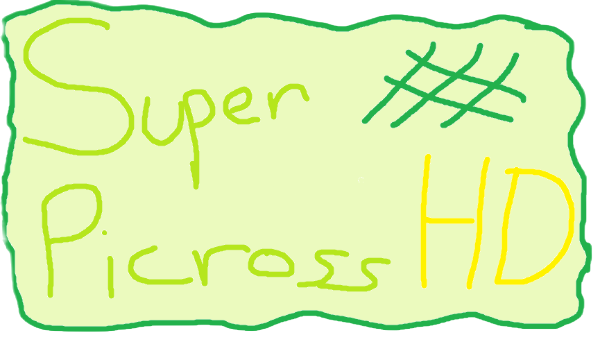 Super
Picross HD